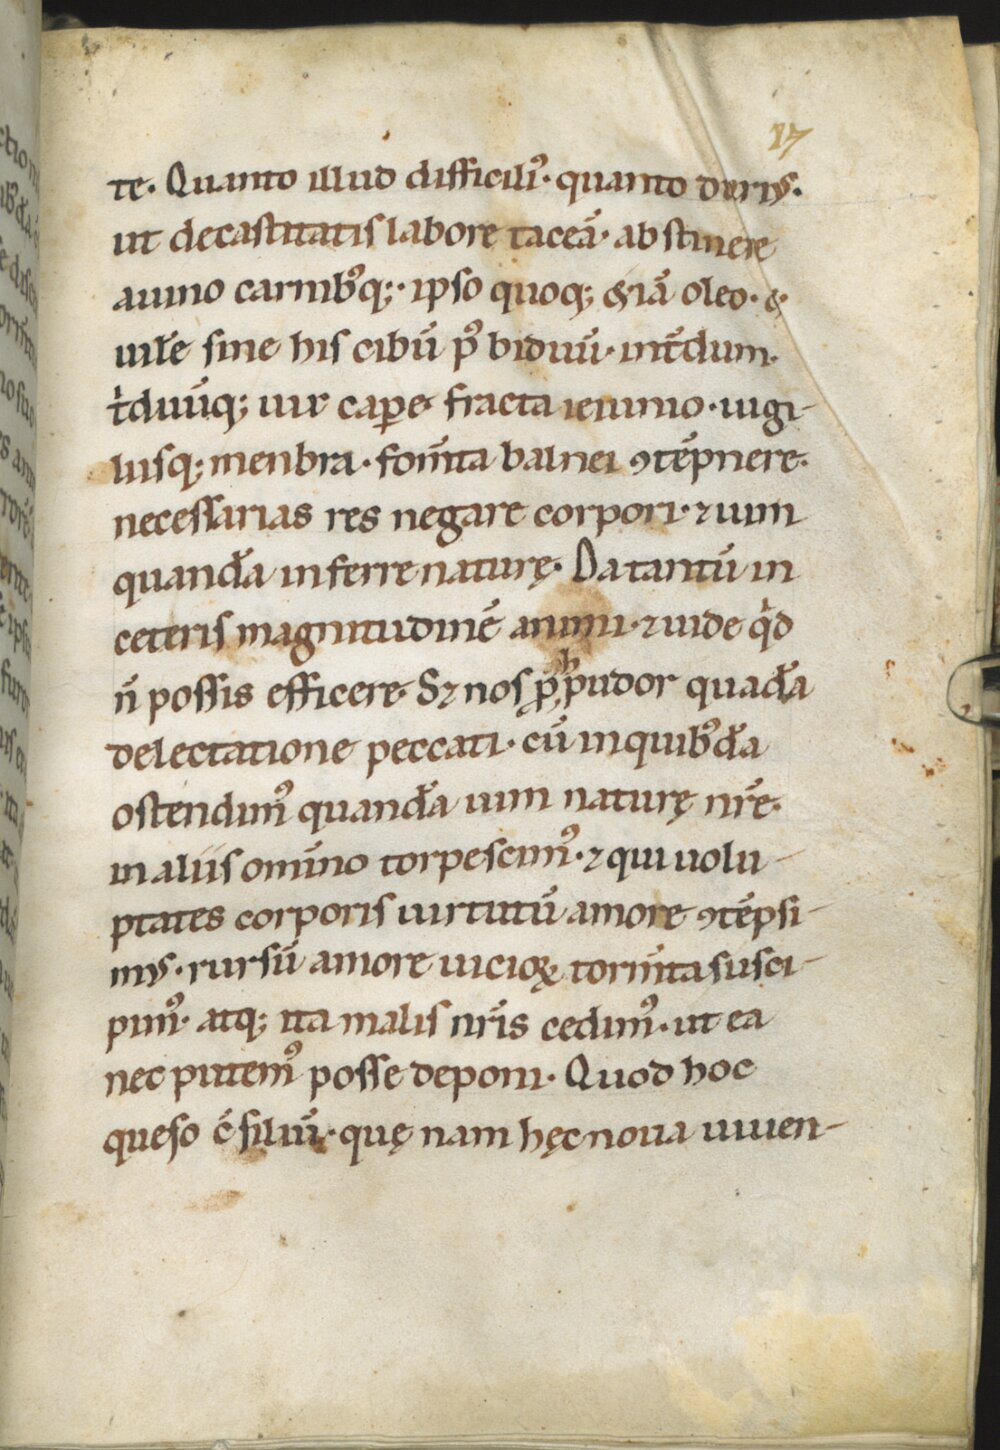 17
te. Quanto illud difficili᷒· quanto duriꝰ.
ut decastitatis labore taceā· abstinere
auino carnib᷒q;· ipso quoq; &iā oleo· &
uile sine his cibū p᷒ biduū· int̄dum·
t̍duūq; uix capere· fracta ieiunio· uigi-
liisq; menbra· fom̄ta balnei ꝯtēpnere·
necessarias res negare corpori· ⁊ uim
quandā inferre naturę. Da tantū in
ceteris magnitudinē animi· ⁊ uide qͥd
n̄ possis efficere. S⁊ nos ꝓh pudor quadā
delectatione peccati· cū inquib᷒dā
ostendim᷒ quandā uim naturę nr̄e·
in aliis omīno torpescim᷒· ⁊ qui uolu-
ptates corporis uirtutū amore ꝯtēpsi-
mꝰ· rursū amore uicioꝝ torm̄ta susci-
pim᷒· atq; ita malis nr̄is cedim᷒· ut ea
nec putem᷒ posse deponi. Quod hoc
queso c̄siliū· quę nam hęc noua uiuen-